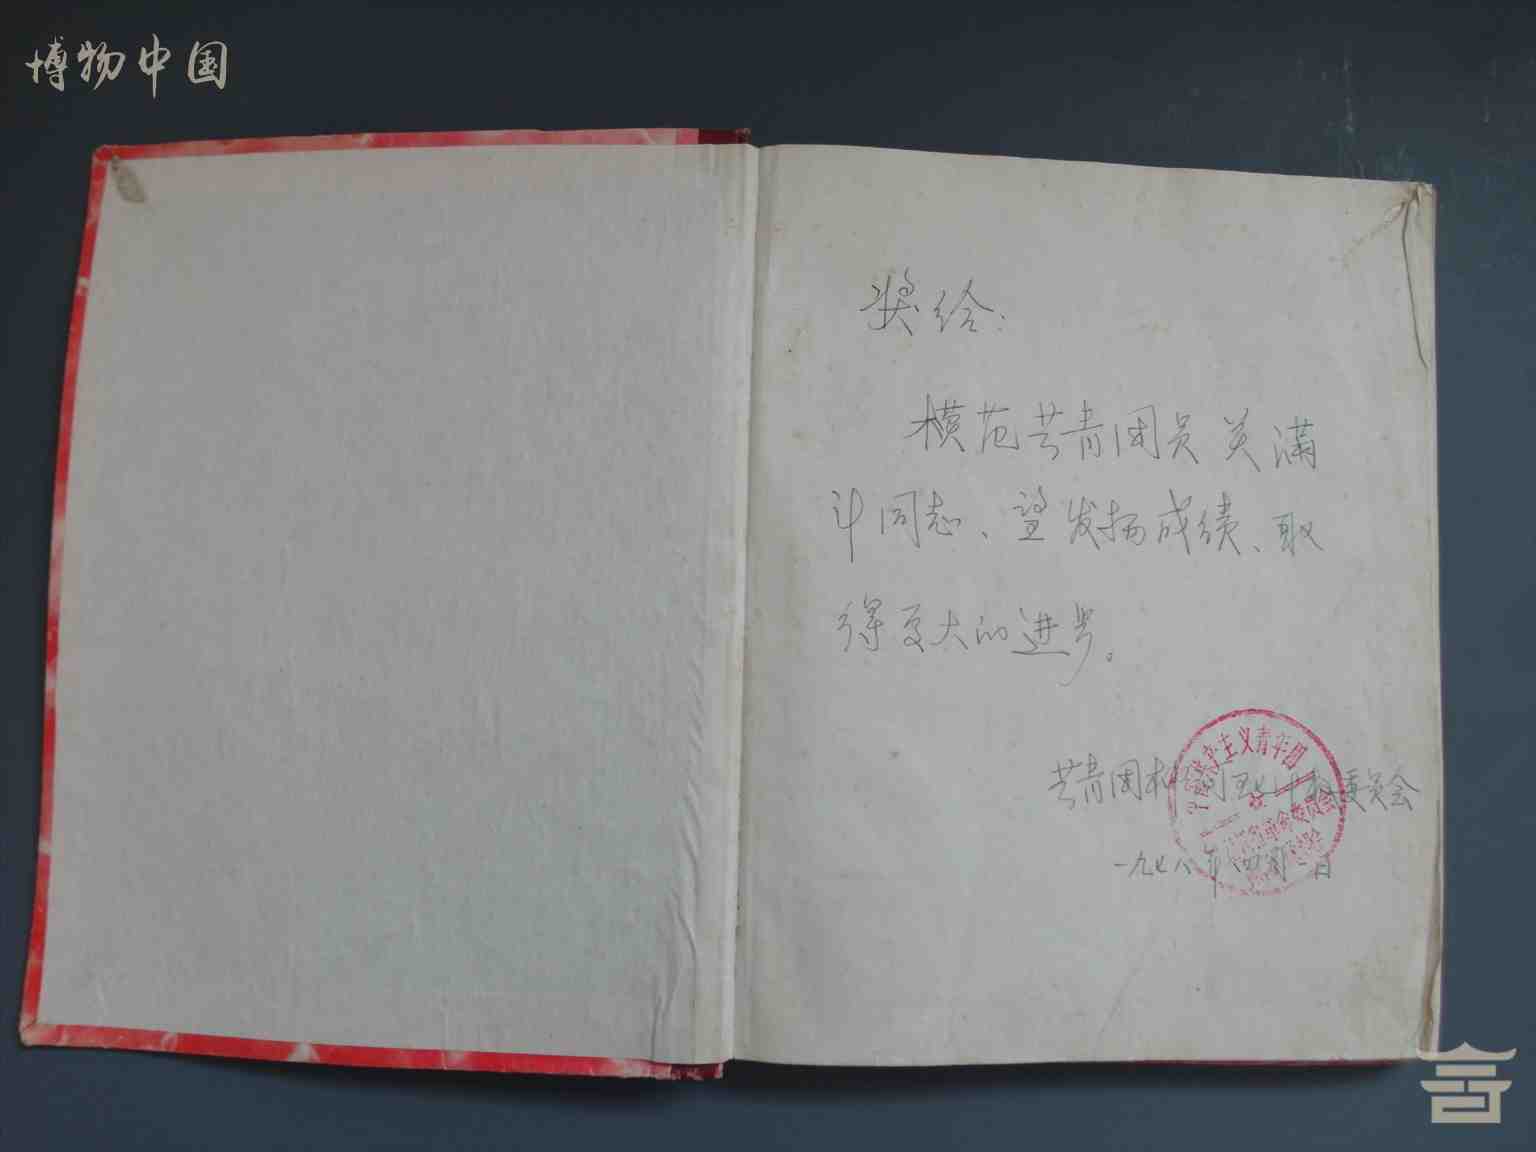 博物中国
奖给：
模范共青团员关满
斗同志、望发扬成绩、取
得更大的进步。
共青团 委员会
一九七八年四月 日
中国共产主义青年团
革命委员会